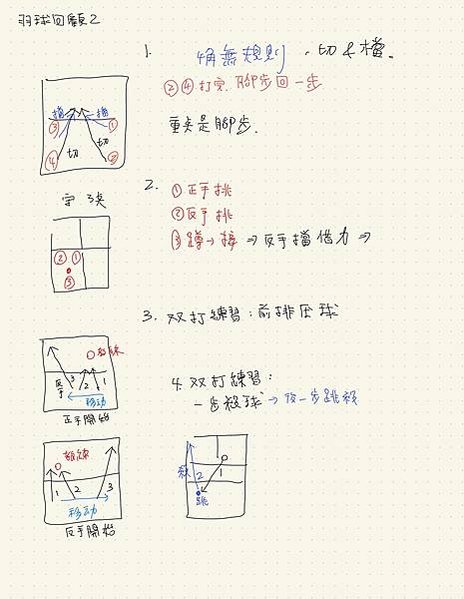 羽球回顧2
1. 4角無規則,切+檔.
②④打完,腳步回一步
重点是腳步.
檔 檔
③ ①
切 切
④ ②
守 3夾
2. ①正手挑
②反手挑
③蹲→接 ⇒反手擋借力⇒
② ①
③
3. 双打練習:前排压球
教練
反手 3 2 1
移動
正手開始
4. 双打練習:
一步殺球→後一步跳殺
教練
1 2 3
移動
反手開始
殺 2 1
跳